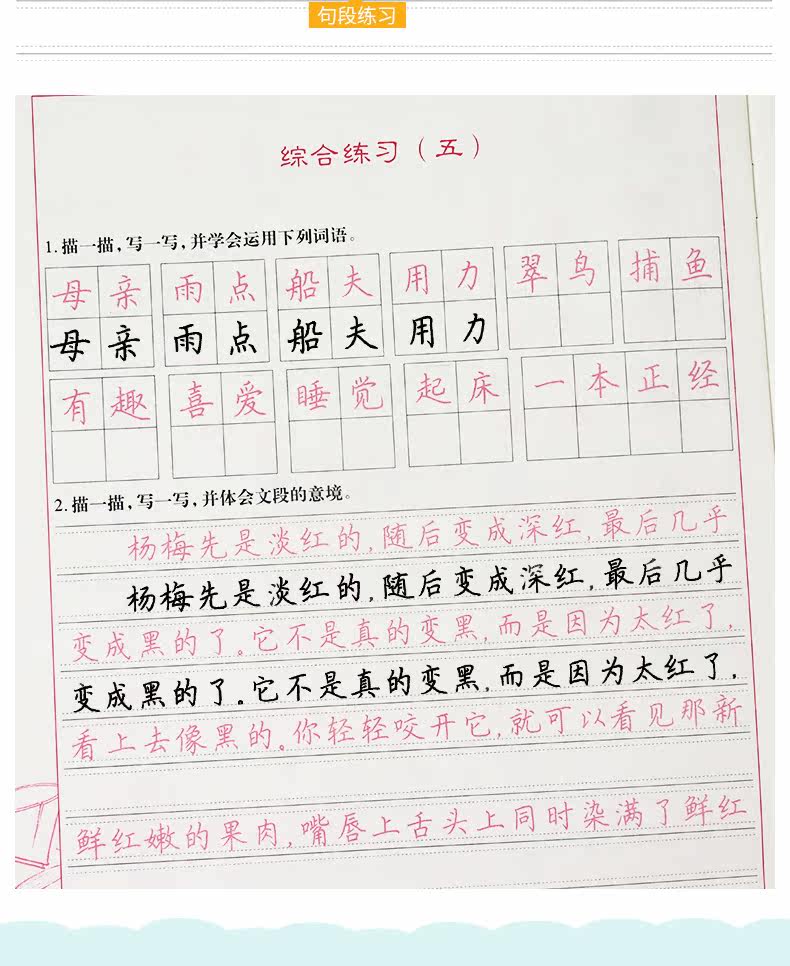 句段练习
综合练习（五）
1.描一描,写一写,并学会运用下列词语。
母亲 雨点 船夫 用力 翠鸟 捕鱼
母亲 雨点 船夫 用力
有趣 喜爱 睡觉 起床 一本正经
2.描一描,写一写,并体会文段的意境。
杨梅先是淡红的,随后变成深红,最后几乎
杨梅先是淡红的,随后变成深红,最后几乎
变成黑的了。它不是真的变黑,而是因为太红了,
变成黑的了。它不是真的变黑,而是因为太红了,
看上去像黑的。你轻轻咬开它,就可以看见那新
鲜红嫩的果肉,嘴唇上舌头上同时染满了鲜红